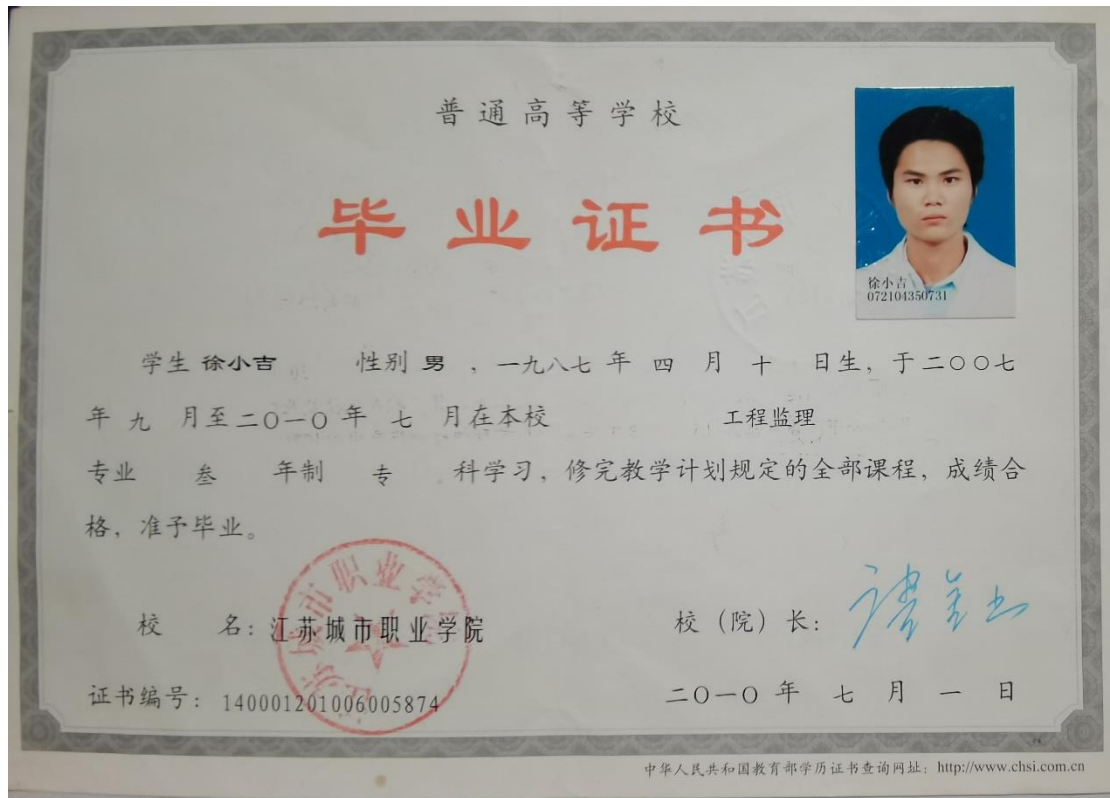 普通高等学校
毕业证书
徐小吉
072104350731
学生 徐小吉 性别 男 ，一九八七 年 四 月 十 日生，于二〇〇七
年 九 月至二〇一〇 年 七 月在本校 工程监理
专业 叁 年制 专 科学习，修完教学计划规定的全部课程，成绩合
格，准予毕业。
江苏城市职业学院
校 名：江苏城市职业学院 校（院）长：
证书编号：140001201006005874 二〇一〇 年 七 月 一 日
中华人民共和国教育部学历证书查询网址：http://www.chsi.com.cn